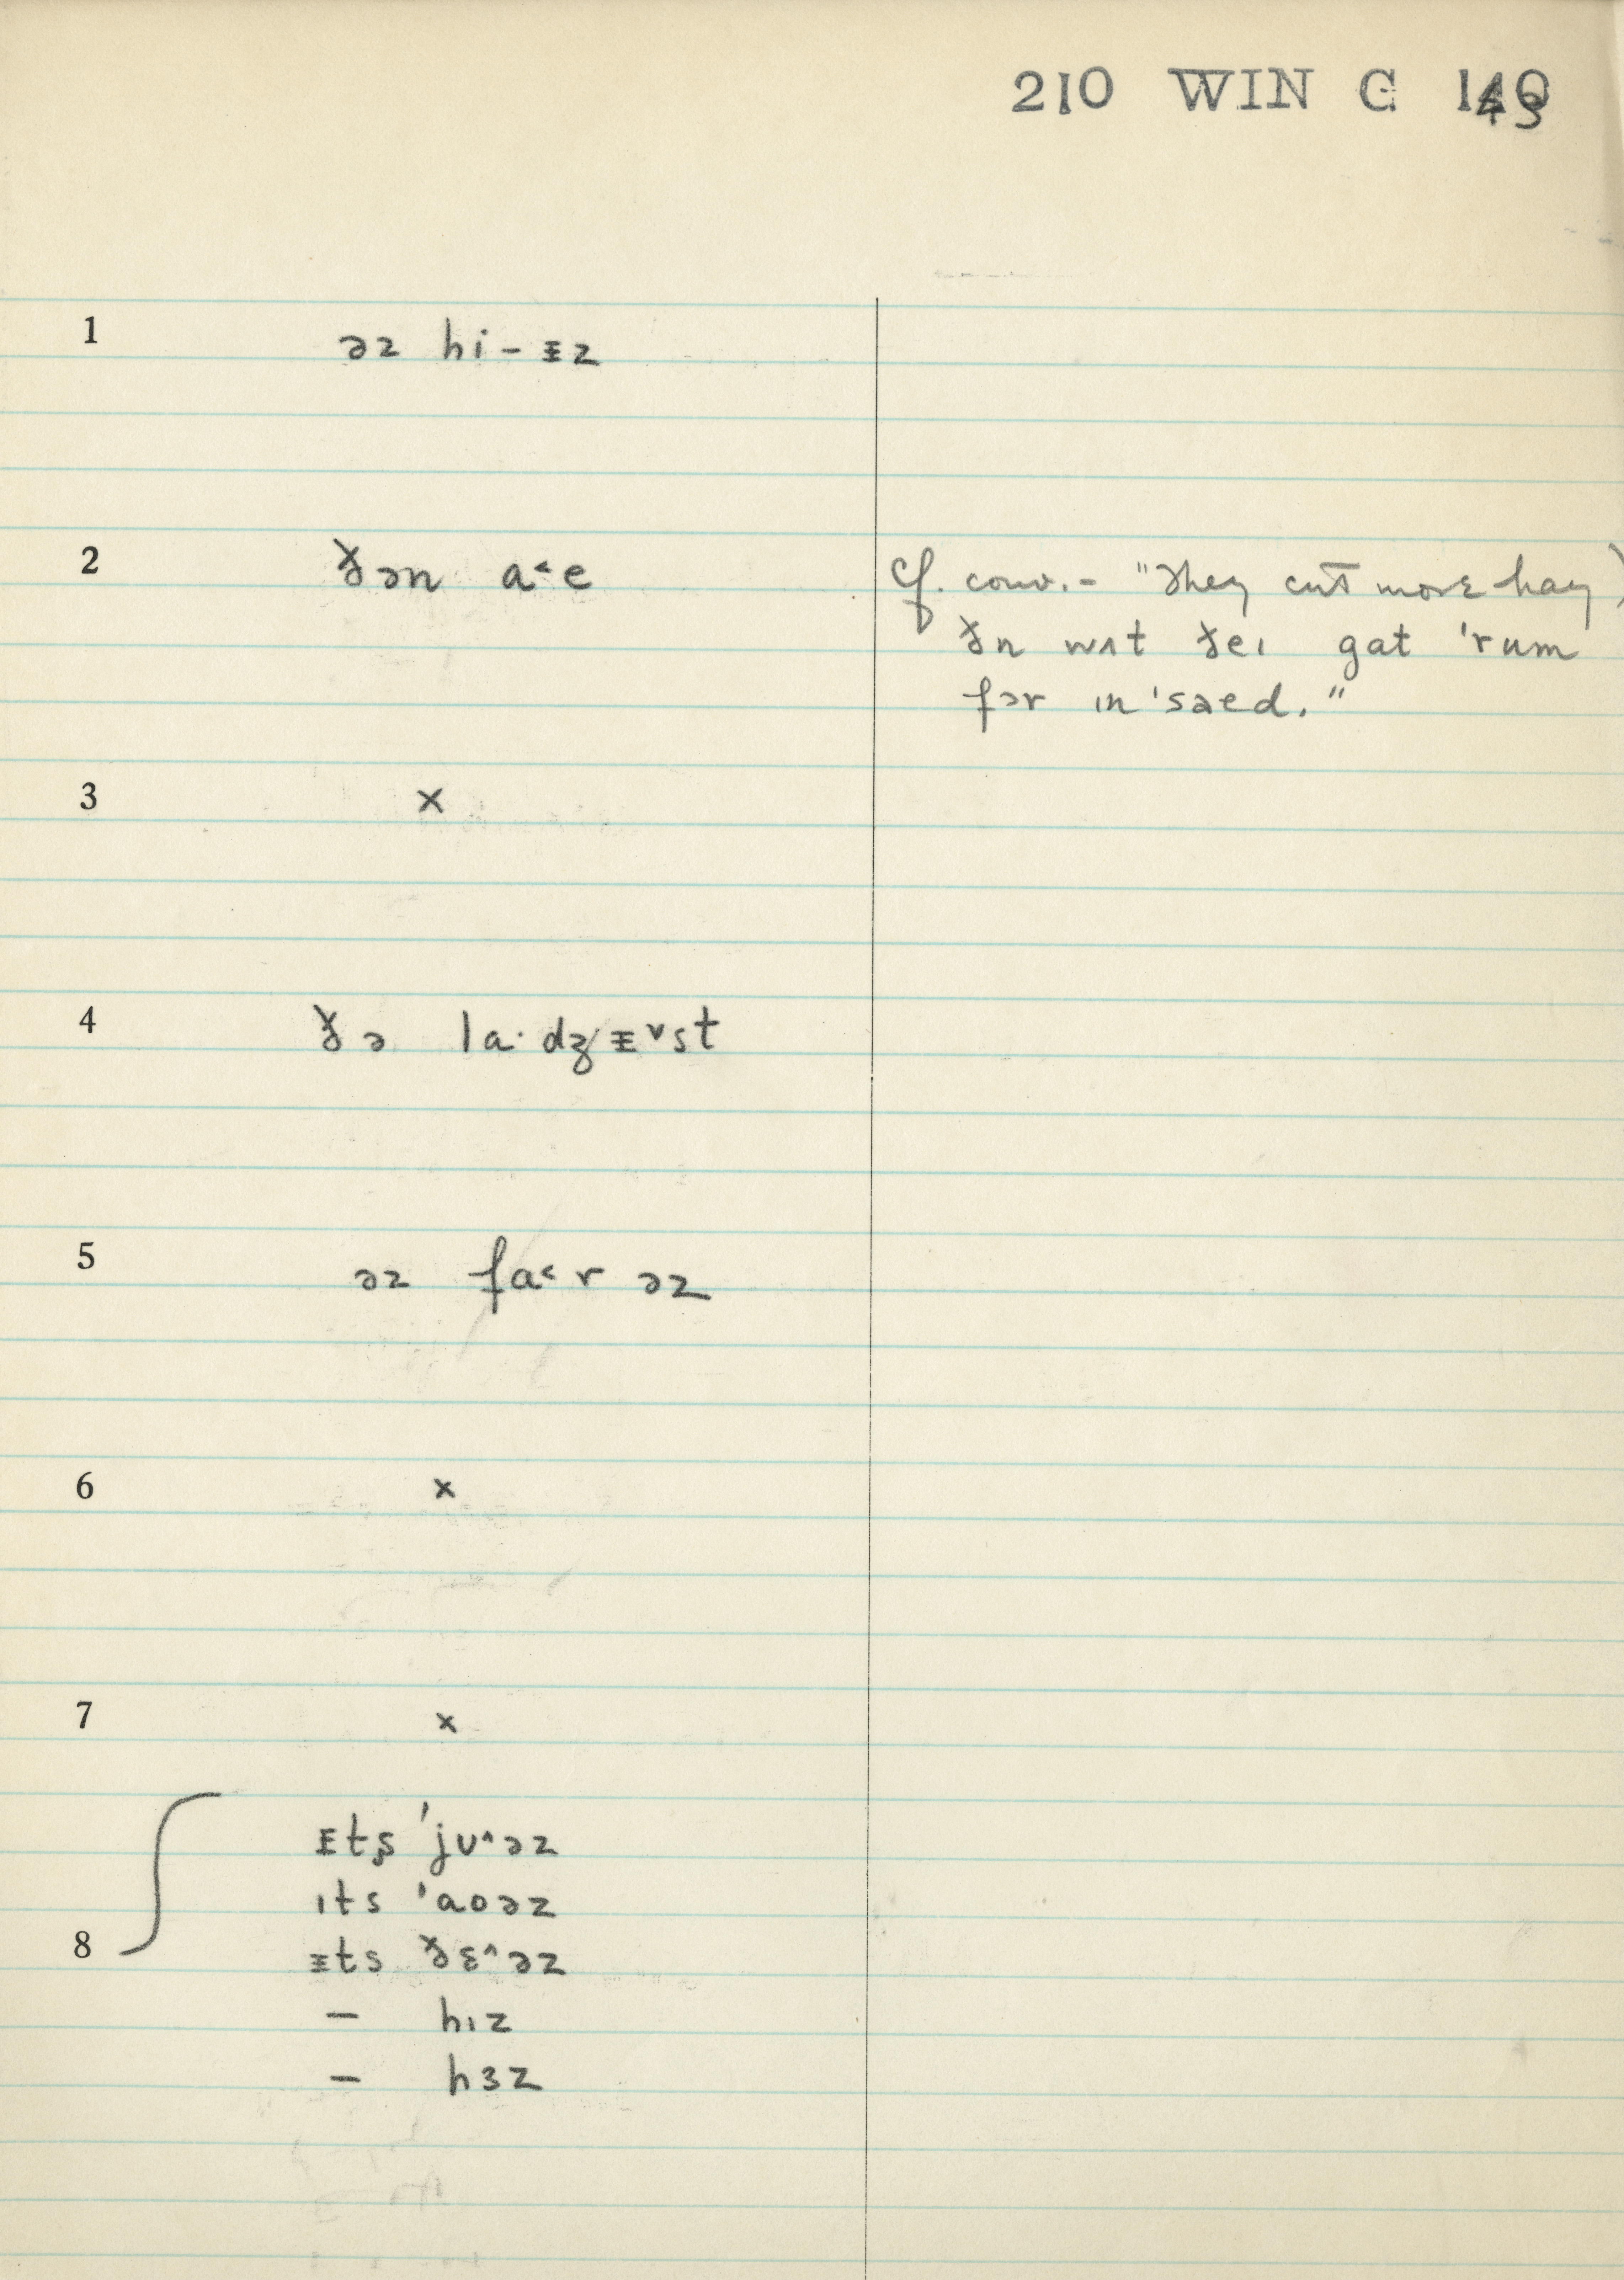 210 WIN C 143
1 əz hi – ᵻz
2 ðən a˂e
cf. conv. – "They cut more hay)
ðn wʌt ðeɪ gat 'rum
fər ɪn'saed."
3 ×
4 ðə la·dʒᵻ˅st
5 əz fa˂r əz
6 ×
7 ×
ᵻts 'jʊ˄əz
ɪts 'aoəz
8 ᵻts ðɛ˄əz
– hɪz
– hɜz